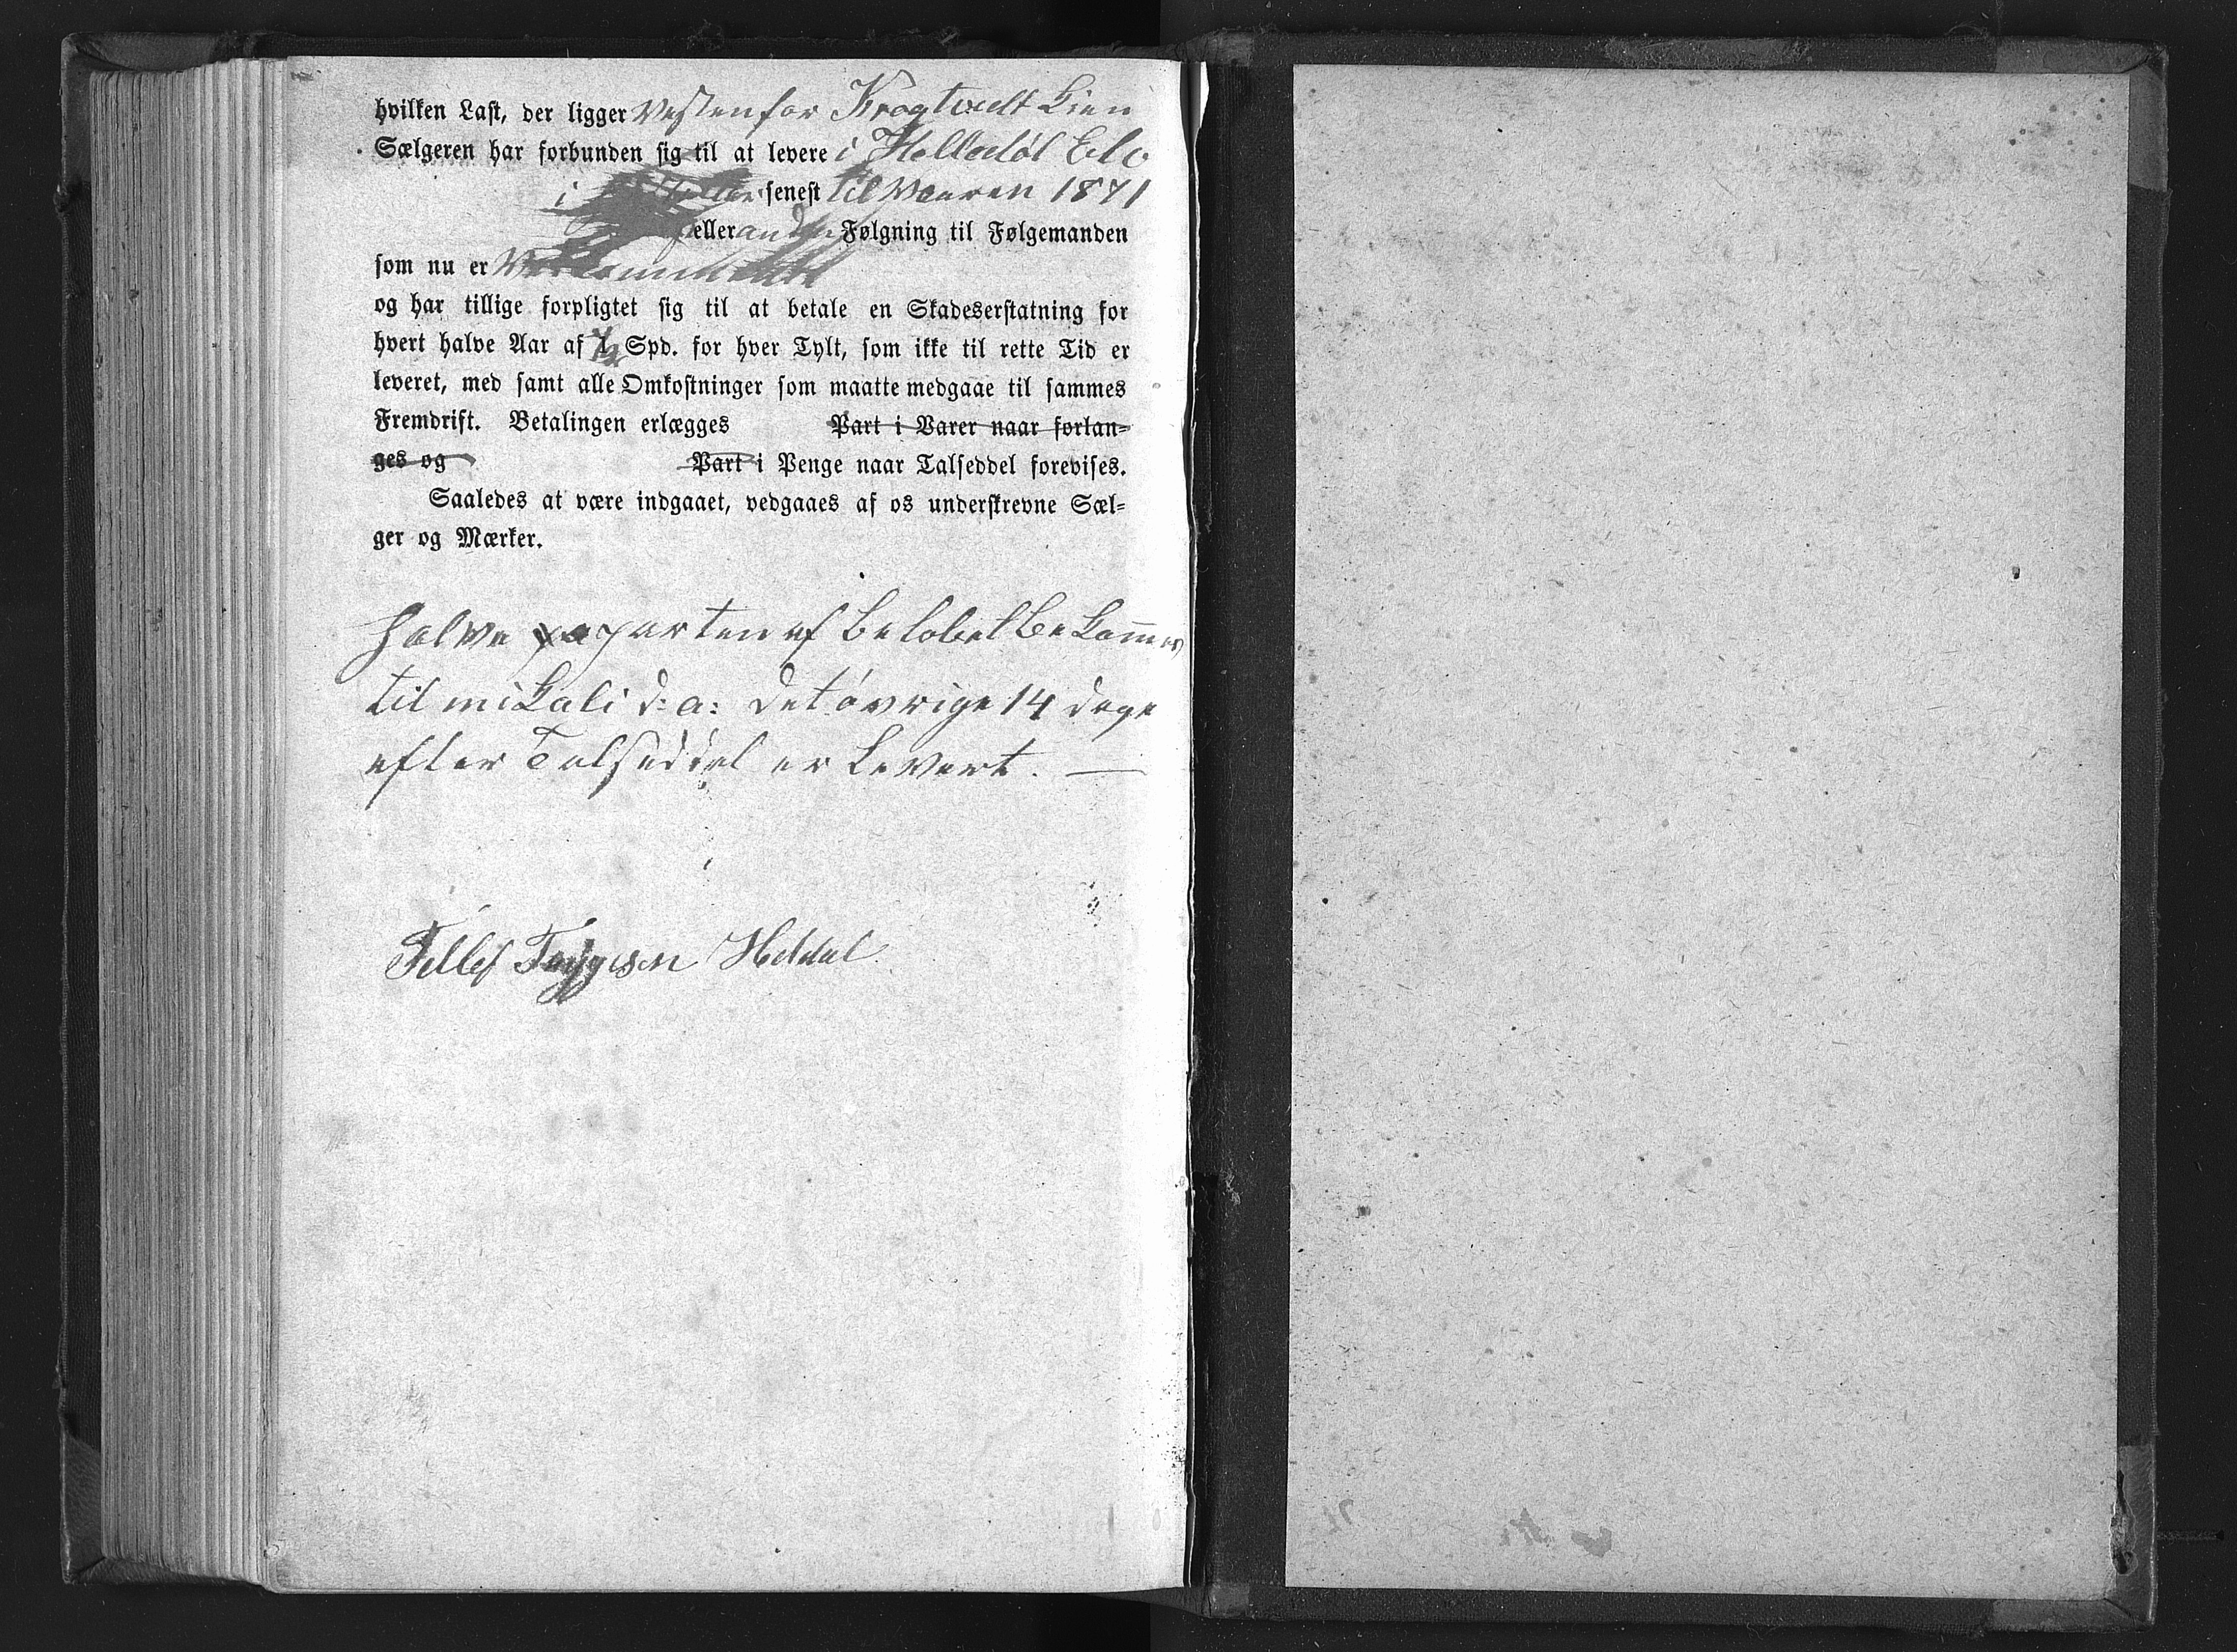 hvilken Last, der ligger Vestenfor Krogtvedt Kien
Sælgeren har forbunden sig til at levere i Helledøl Elv
i senest til Vaaren 1871
eller anden Følgning til Følgemanden
som nu er
og har tillige forpligtet sig til at betale en Skadeserstatning for
hvert halve Aar af ½ Spd. for hver Tylt, som ikke til rette Tid er
leveret, med samt alle Omkostninger som maatte medgaae til sammes
Fremdrift. Betalingen erlægges Part i Varer naar forlan-
ges og Part i Penge naar Talseddel forevises.
Saaledes at være indgaaet, vedgaaes af os underskrevne Sæl-
ger og Mærker.
halve parten af Beløbet Bekommes
til mikali d: a: det øvrige 14 dage
efter Talseddel er Levert. —
Tellef Heddal